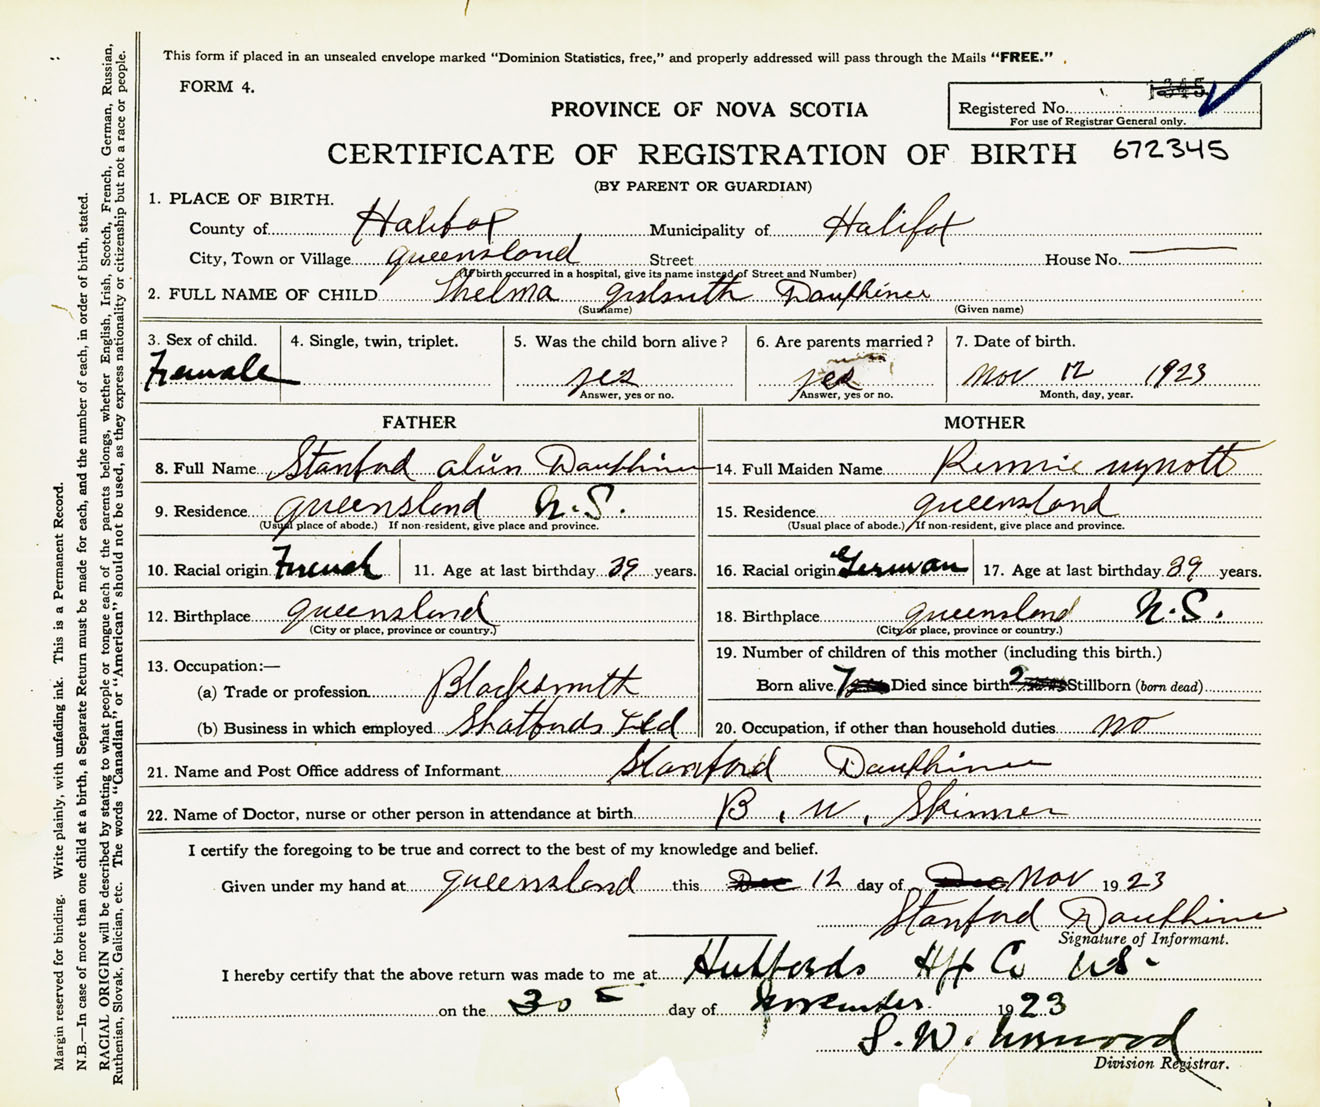 This form if placed in an unsealed envelope marked "Dominion Statistics, free," and properly addressed will pass through the Mails "FREE."
FORM 4.
1345
PROVINCE OF NOVA SCOTIA
Registered No.
For use of Registrar General only.
CERTIFICATE OF REGISTRATION OF BIRTH 672345
(BY PARENT OR GUARDIAN)
1. PLACE OF BIRTH.
County of Halifax Municipality of Halifax
City, Town or Village queensland Street House No.
(If birth occurred in a hospital, give its name instead of Street and Number)
2. FULL NAME OF CHILD Thelma Dauphinee
(Surname) (Given name)
3. Sex of child. 4. Single, twin, triplet. 5. Was the child born alive? 6. Are parents married? 7. Date of birth.
Female yes yes Nov 12 1923
Answer, yes or no. Answer, yes or no. Month, day, year.
FATHER MOTHER
8. Full Name Stanford Dauphinee 14. Full Maiden Name
9. Residence queensland N.S. 15. Residence queensland
(Usual place of abode.) If non-resident, give place and province. (Usual place of abode.) If non-resident, give place and province.
10. Racial origin French 11. Age at last birthday 39 years. 16. Racial origin German 17. Age at last birthday 39 years.
12. Birthplace queensland 18. Birthplace queensland N.S.
(City or place, province or country.) (City or place, province or country.)
13. Occupation:— 19. Number of children of this mother (including this birth.)
(a) Trade or profession Blacksmith Born alive 7 Died since birth 2 Stillborn (born dead)
(b) Business in which employed Shatfords Ltd 20. Occupation, if other than household duties no
21. Name and Post Office address of Informant Stanford Dauphinee
22. Name of Doctor, nurse or other person in attendance at birth B. W. Skinner
I certify the foregoing to be true and correct to the best of my knowledge and belief.
Given under my hand at queensland this Dec 12 day of Dec Nov 1923
Stanford Dauphinee
Signature of Informant.
I hereby certify that the above return was made to me at Hubbards Hfx Co N.S.
on the 30 day of November 1923
S. W.
Division Registrar.
Margin reserved for binding. Write plainly, with unfading ink. This is a Permanent Record.
N.B.—In case of more than one child at a birth, a Separate Return must be made for each, and the number of each, in order of birth, stated.
RACIAL ORIGIN will be described by stating to what people or tongue each of the parents belongs, whether English, Irish, Scotch, French, German, Russian,
Ruthenian, Slovak, Galician, etc. The words "Canadian" or "American" should not be used, as they express nationality or citizenship but not a race or people.